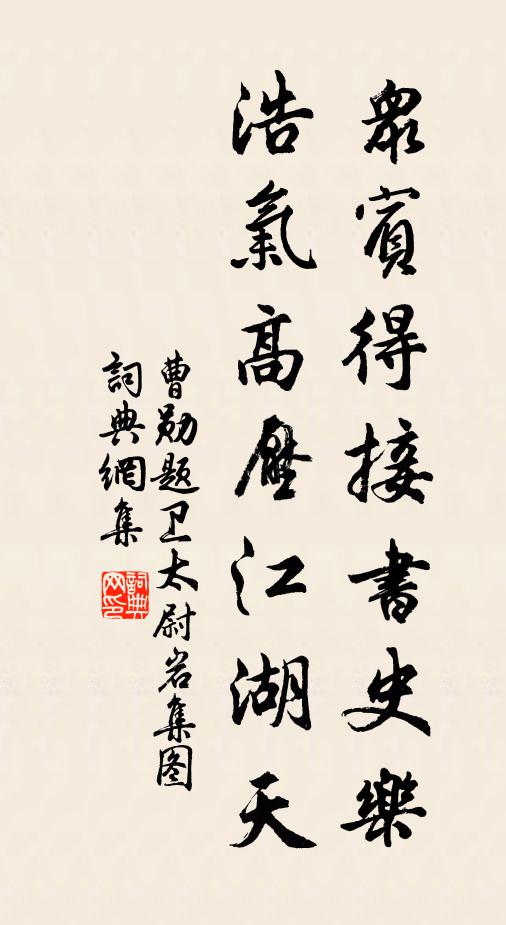 眾賓得接書史樂
浩氣高壓江湖天
曹勛題卫太尉岩集图
詞典網集
詞典網印